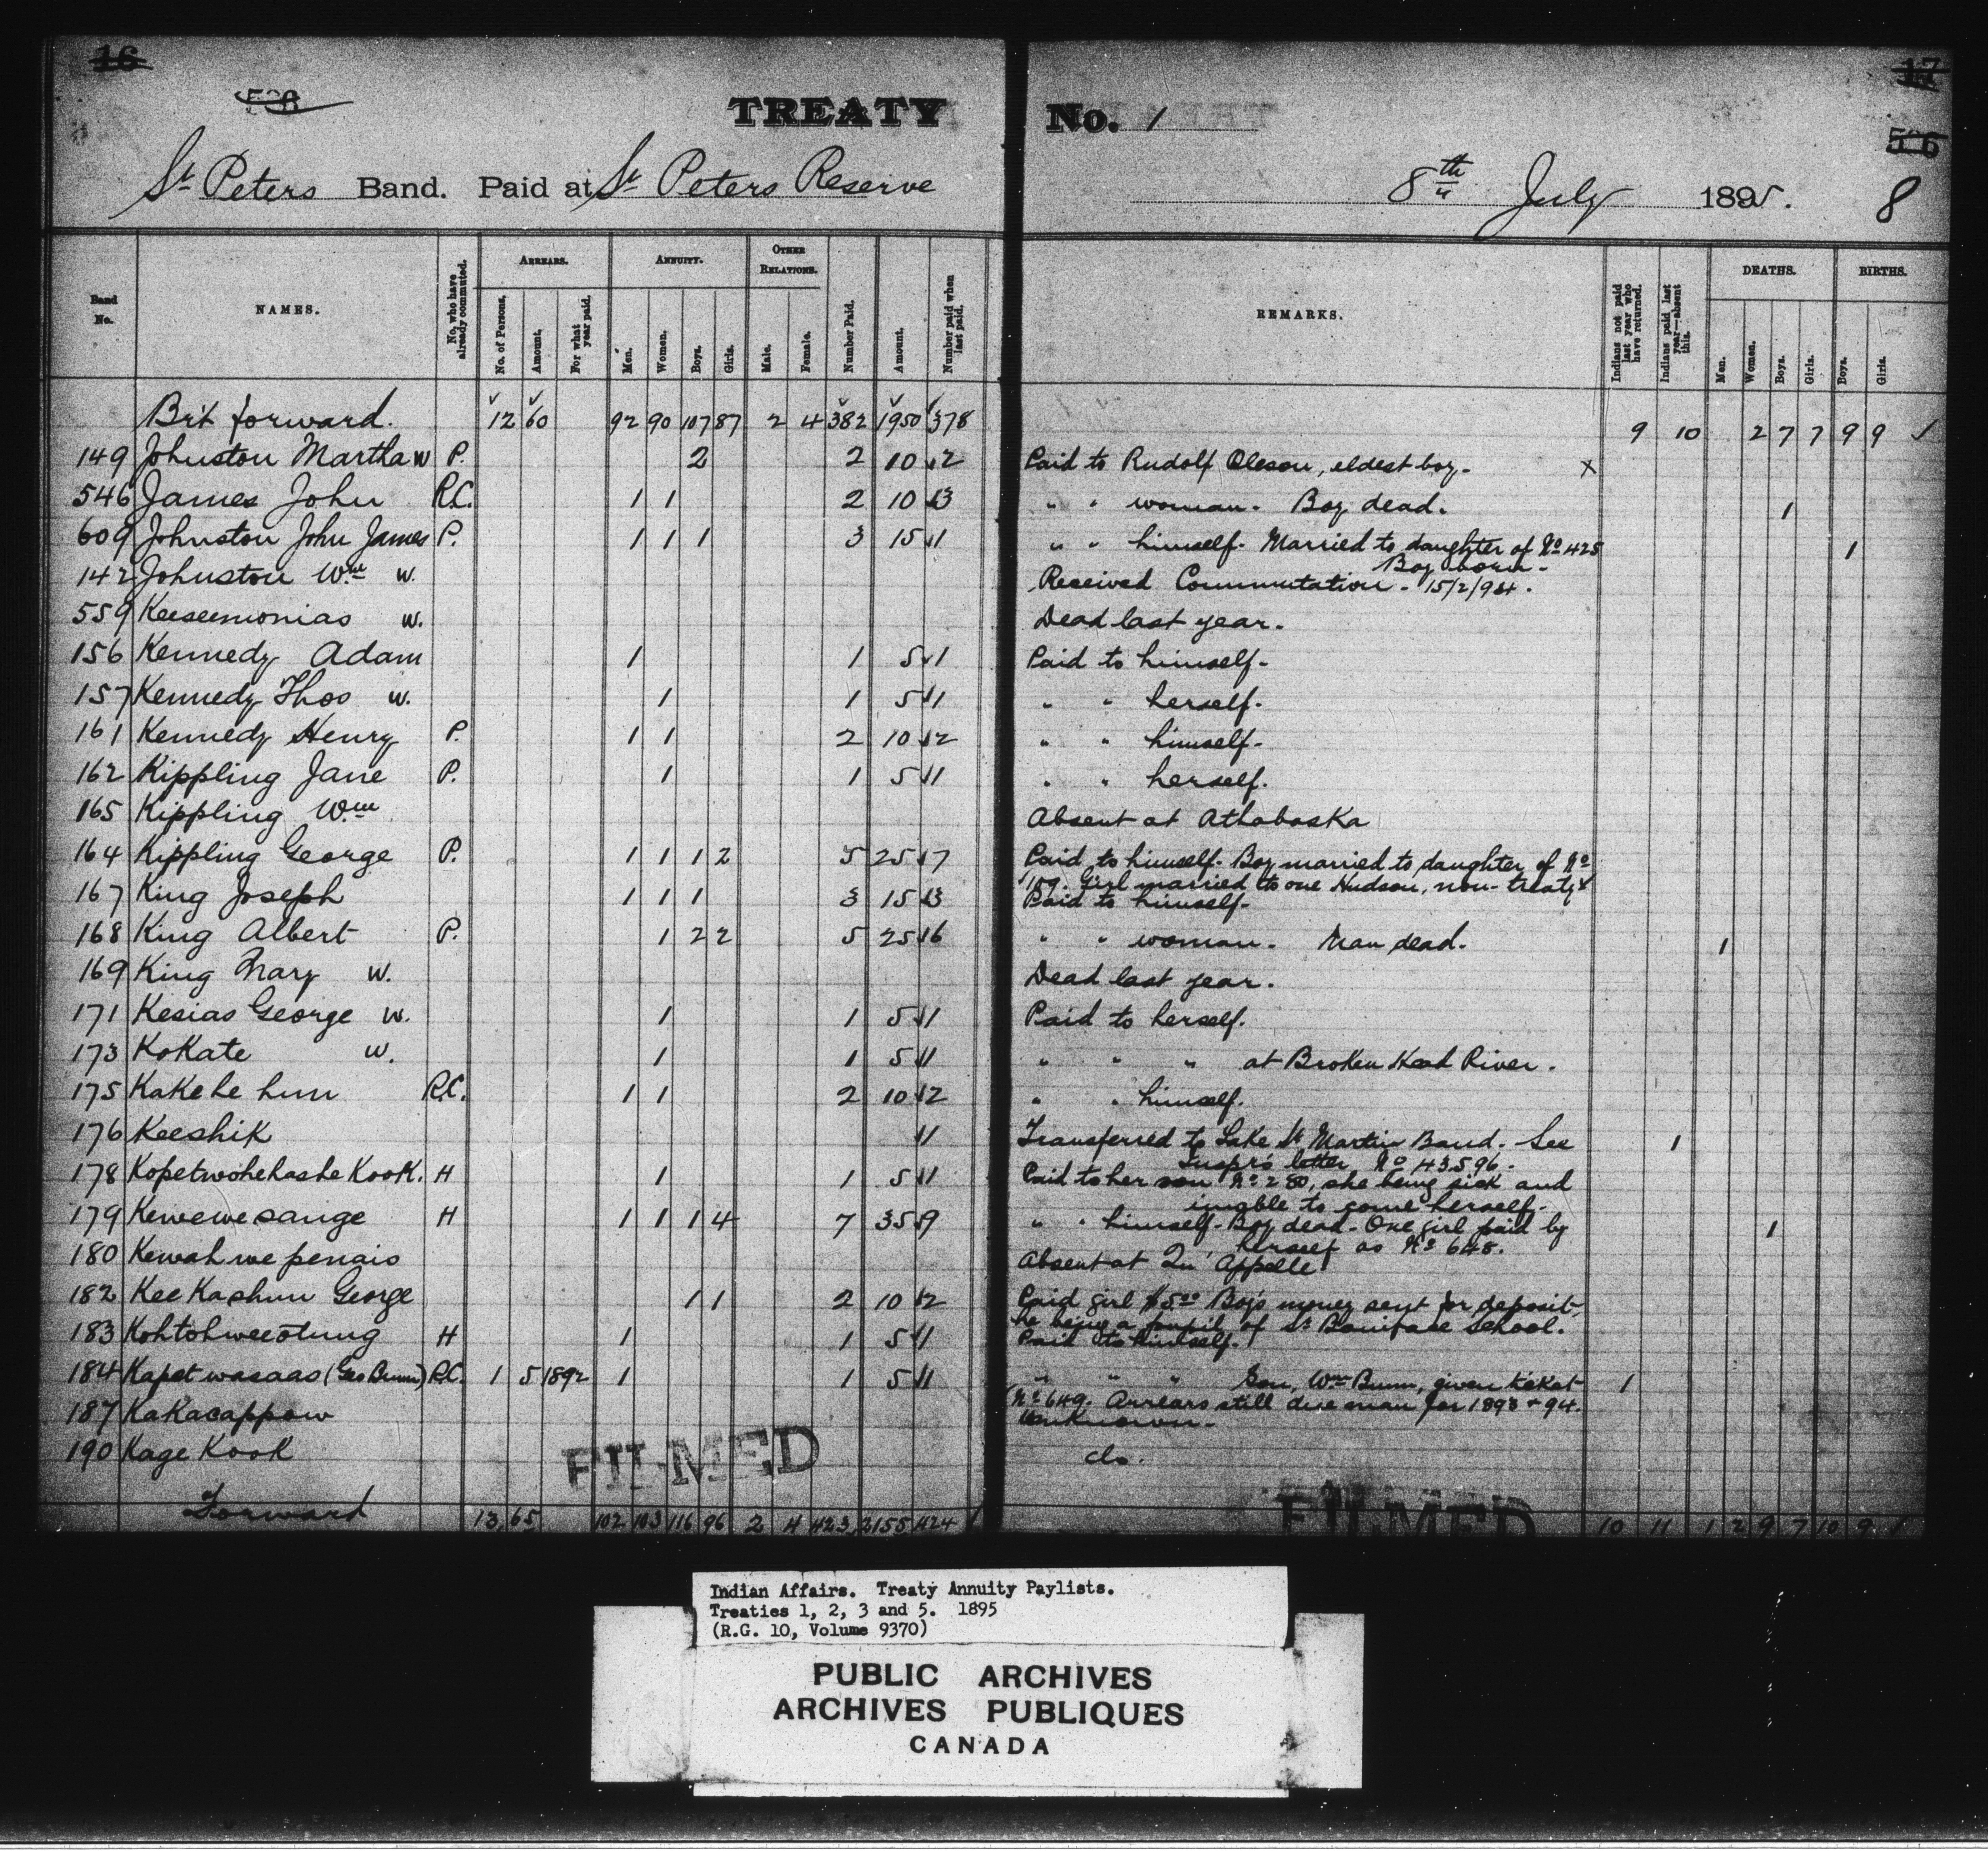 16
TREATY No. 1
17
St Peters Band. Paid at St Peters Reserve 8th July 1895. 8
Band No. NAMES. No. who have already commuted. ARREARS. No. of Persons. Amount. For what year paid. ANNUITY. Men. Women. Boys. Girls. OTHER RELATIONS. Male. Female. Number Paid. Amount. Number paid when last paid. REMARKS. Indians not paid last year who have returned. Indians paid last year—absent this. DEATHS. Men. Women. Boys. Girls. BIRTHS. Boys. Girls.
Brt forward. 12 60 92 90 107 87 2 4 382 1950 378 9 10 2 7 7 9 9 ✓
149 Johnston Martha W P. 2 2 10 2 Paid to Rudolf Oleson, eldest boy. X
546 James John R.C. 1 1 2 10 3 " " woman. Boy dead. 1
609 Johnston John James P. 1 1 1 3 15 1 " " himself. Married to daughter of No 425 1
Boy born.
142 Johnston Wm W. Received Commutation. 15/2/94.
559 Keeseemonias W. Dead last year.
156 Kennedy Adam 1 1 5 1 Paid to himself.
157 Kennedy Thos W. 1 1 5 1 " " herself.
161 Kennedy Henry P. 1 1 2 10 2 " " himself.
162 Kippling Jane P. 1 1 5 1 " " herself.
165 Kippling Wm Absent at Athabaska
164 Kippling George P. 1 1 1 2 5 25 7 Paid to himself. Boy married to daughter of No
159. Girl married to one Hudson, non-treaty
167 King Joseph 1 1 1 3 15 3 Paid to himself.
168 King Albert P. 1 2 2 5 25 6 " " woman. Man dead. 1
169 King Mary W. Dead last year.
171 Kesias George W. 1 1 5 1 Paid to herself.
173 KoKate W. 1 1 5 1 " " " at Broken Head River.
175 Kakehe hun R.C. 1 1 2 10 2 " " himself.
176 Keeshik 1 Transferred to Lake St Martin Band. See 1
Inspr's letter No 43596.
178 Kopetwohehashe Kook. H 1 1 5 1 Paid to her son No 280, she being sick and
unable to come herself.
179 Kewewesange H 1 1 1 4 7 35 9 " " himself. Boy dead. One girl paid by 1
herself as No 645.
180 Kewah we penais Absent at Qu'Appelle
182 Kee Kashun George 1 1 2 10 2 Paid girl $5.00 Boy's money sent for deposit,
he being a pupil of St Boniface School.
183 Kohtohweeotung H 1 1 5 1 Paid to himself.
184 Kapetwasaas (Geo Bunn) R.C. 1 5 1892 1 1 5 1 " " " Son, Wm Bunn, given ticket 1
No 649. Arrears still due man for 1893 + 94.
187 KaKacappow Unknown.
190 Kage Kook do.
FILMED
FILMED
Forward 13 65 102 103 116 96 2 4 423 2155 424 10 11 1 2 9 7 10 9
Indian Affairs. Treaty Annuity Paylists.
Treaties 1, 2, 3 and 5. 1895
(R.G. 10, Volume 9370)
PUBLIC ARCHIVES
ARCHIVES PUBLIQUES
CANADA